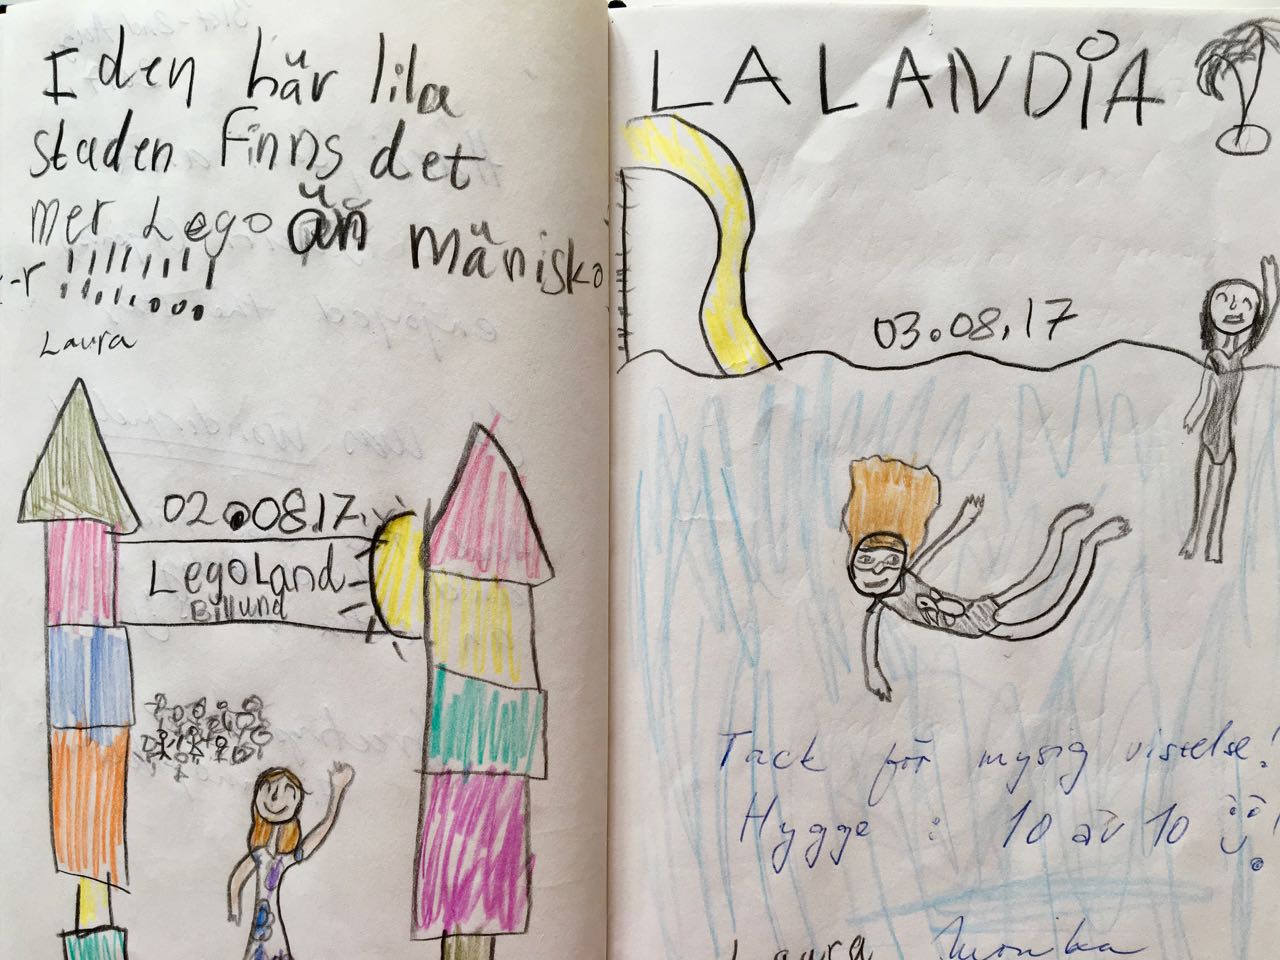 I den här lila
staden finns det
mer Lego än mänisko
-r !!!!!!!!
Laura
02.08.17.
LegoLand
Billund
LALANDiA
03.08.17
Tack för mysig vistelse!
Hygge : 10 av 10
Laura Monika